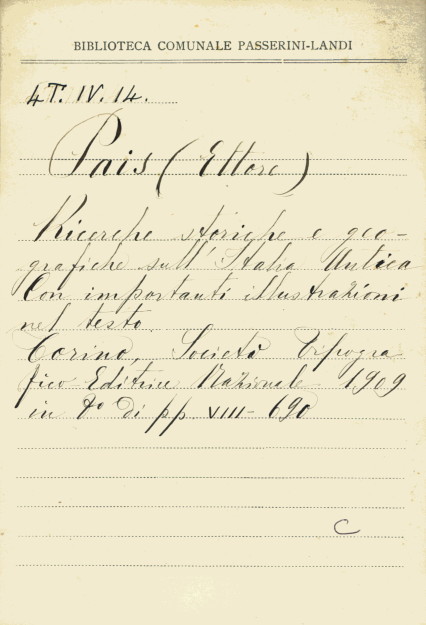 BIBLIOTECA COMUNALE PASSERINI-LANDI
4T. IV. 14.
Pais (Ettore)
Ricerche storiche e geo-
grafiche sull'Italia Antica
Con importanti illustrazioni
nel testo.
Torino, Società Tipogra
fico Editrice Nazionale 1909
in 8º di pp. VIII-690
C